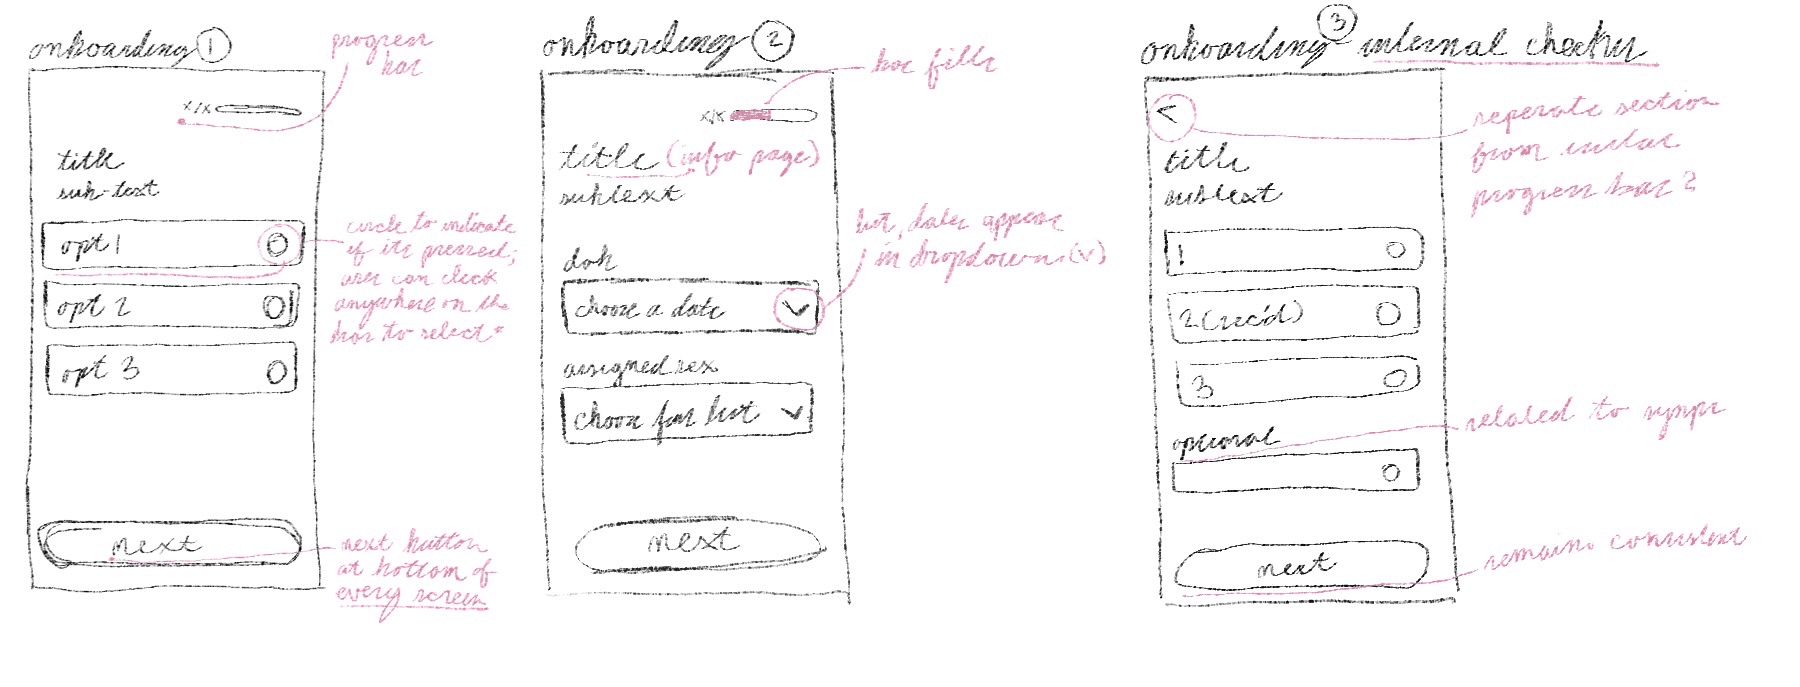 onboarding 1
progress
bar
x/x
title
sub-text
opt 1
opt 2
opt 3
next
circle to indicate
if its pressed;
user can click
anywhere on the
box to select*
next button
at bottom of
every screen
onboarding 2
bar fills
x/x
title (info page)
subtext
dob
choose a date
assigned sex
choose from list
next
list, dates appear
in dropdown (v)
onboarding 3 internal checker
<
title
subtext
1
2 (rec'd)
3
optional
next
seperate section
from
progress bar?
related to
remains consistent